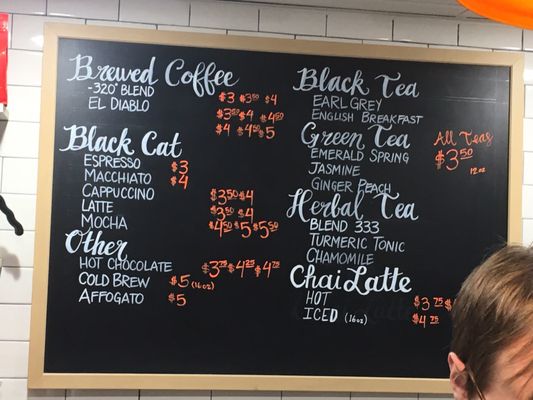 Brewed Coffee
$3 $3⁵⁰ $4
-320° BLEND
$3⁵⁰ $4 $4⁵⁰
EL DIABLO
$4 $4⁵⁰ $5
Black Cat
ESPRESSO $3
MACCHIATO $4
CAPPUCCINO $3⁵⁰ $4
LATTE $3⁵⁰ $4
MOCHA $4⁵⁰ $5 $5⁵⁰
Other
HOT CHOCOLATE $3⁷⁵ $4²⁵ $4⁷⁵
COLD BREW $5 (16oz)
AFFOGATO $5
Black Tea
EARL GREY
ENGLISH BREAKFAST
Green Tea
EMERALD SPRING
JASMINE
GINGER PEACH
All Teas
$3⁵⁰
12oz
Herbal Tea
BLEND 333
TURMERIC TONIC
CHAMOMILE
Chai Latte
HOT $3⁷⁵
ICED (16oz) $4⁷⁵